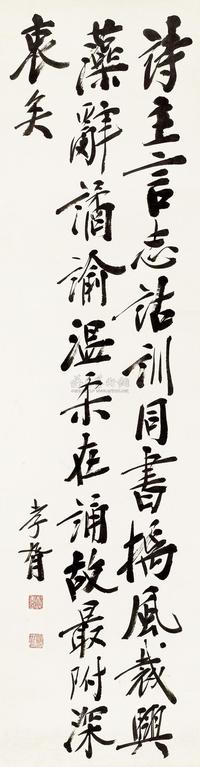 詩主言志詁訓同書摛風裁興
藻辭譎諭溫柔在誦故最附深
衷矣
孝胥